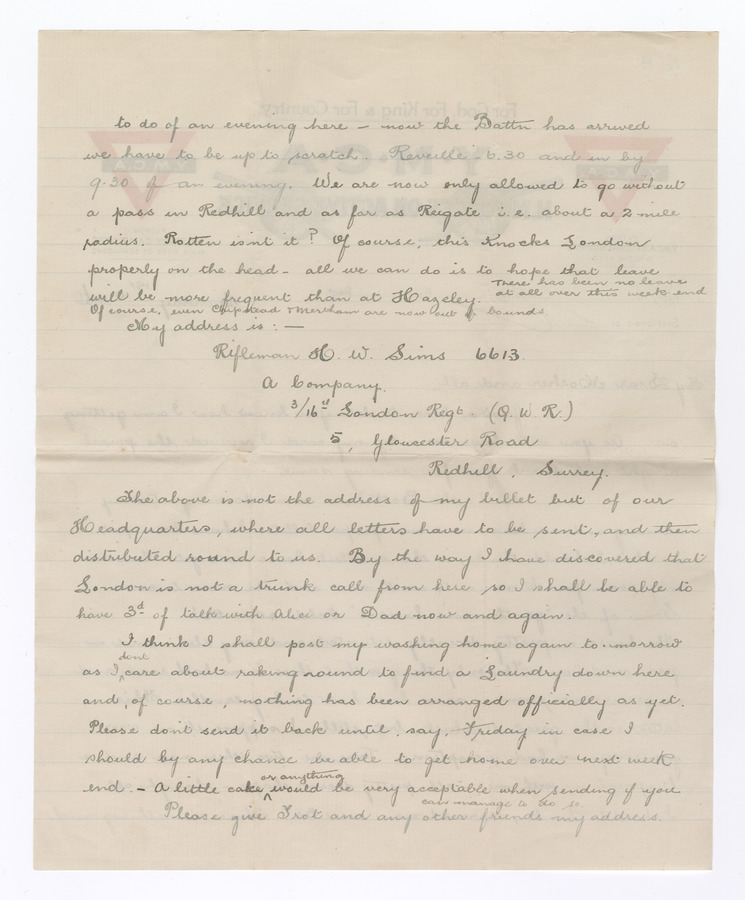 to do of an evening here – now the Battn has arrived
we have to be up to scratch. Reveille 6.30 and in by
9.30 of an evening. We are now only allowed to go without
a pass in Redhill and as far as Reigate i.e. about a 2 mile
radius. Rotten isnt it? Of course, this knocks London
properly on the head – all we can do is to hope that leave
will be more frequent than at Hazeley. There has been no leave
at all over this week end
Of course, even Chipstead & Merstham are now out of bounds
My address is : —
Rifleman H. W. Sims 6613.
A Company.
3/16th London Regt. (Q. W. R.)
5, Gloucester Road
Redhill, Surrey.
The above is not the address of my billet but of our
Headquarters, where all letters have to be sent, and then
distributed round to us. By the way I have discovered that
London is not a trunk call from here so I shall be able to
have 3d of talk with Alice or Dad now and again.
I think I shall post my washing home again to-morrow
as I dont care about raking round to find a Laundry down here
and, of course, nothing has been arranged officially as yet.
Please don't send it back until, say, Friday in case I
should by any chance be able to get home over next week
end. – A little cake or anything would be very acceptable when sending if you
can manage to do so.
Please give Trot and any other friends my address.
For God, For King & For Country.
Y.M.C.A